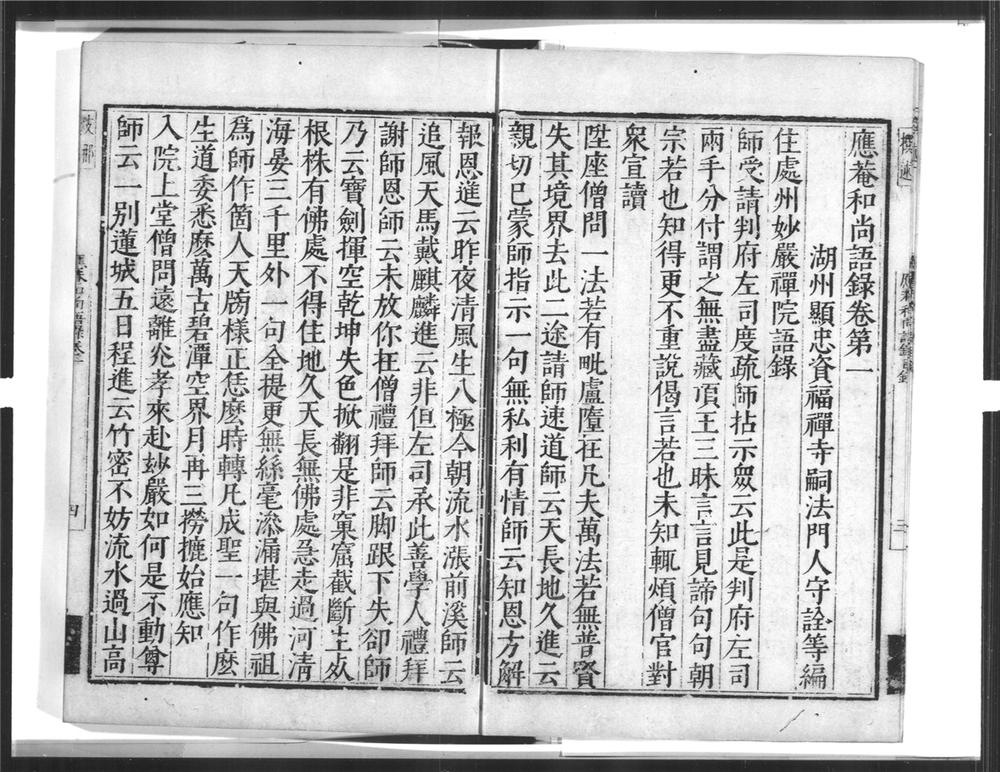 應菴和尚語錄卷第一
湖州顯忠資福禪寺嗣法門人守詮等編
住處州妙嚴禪院語錄
師受請判府左司度疏師拈示眾云此是判府左司
兩手分付謂之無盡藏頂王三昧言言見諦句句朝
宗若也知得更不重說偈言若也未知輒煩僧官對
眾宣讀
陞座僧問一法若有毗盧墮在凡夫萬法若無普賢
失其境界去此二途請師速道師云天長地久進云
親切已蒙師指示一句無私利有情師云知恩方解
報恩進云昨夜清風生八極今朝流水漲前溪師云
追風天馬戴麒麟進云非但左司承此善學人禮拜
謝師恩師云未放你在僧禮拜師云脚跟下失卻師
乃云寶劍揮空乾坤失色掀翻是非窠窟截斷生死
根株有佛處不得住地久天長無佛處急走過河清
海晏三千里外一句全提更無絲毫滲漏堪與佛祖
為師作箇人天牓樣正恁麼時轉凡成聖一句作麼
生道委悉麼萬古碧潭空界月再三撈摝始應知
入院上堂僧問遠離光孝來赴妙嚴如何是不動尊
師云一別蓮城五日程進云竹密不妨流水過山高
四
三